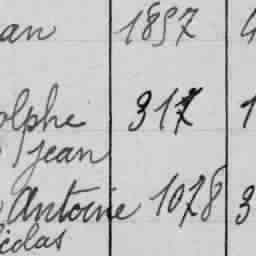 an 1897 4
olphe 317 1
jean
Antoine 1078 3
icolas